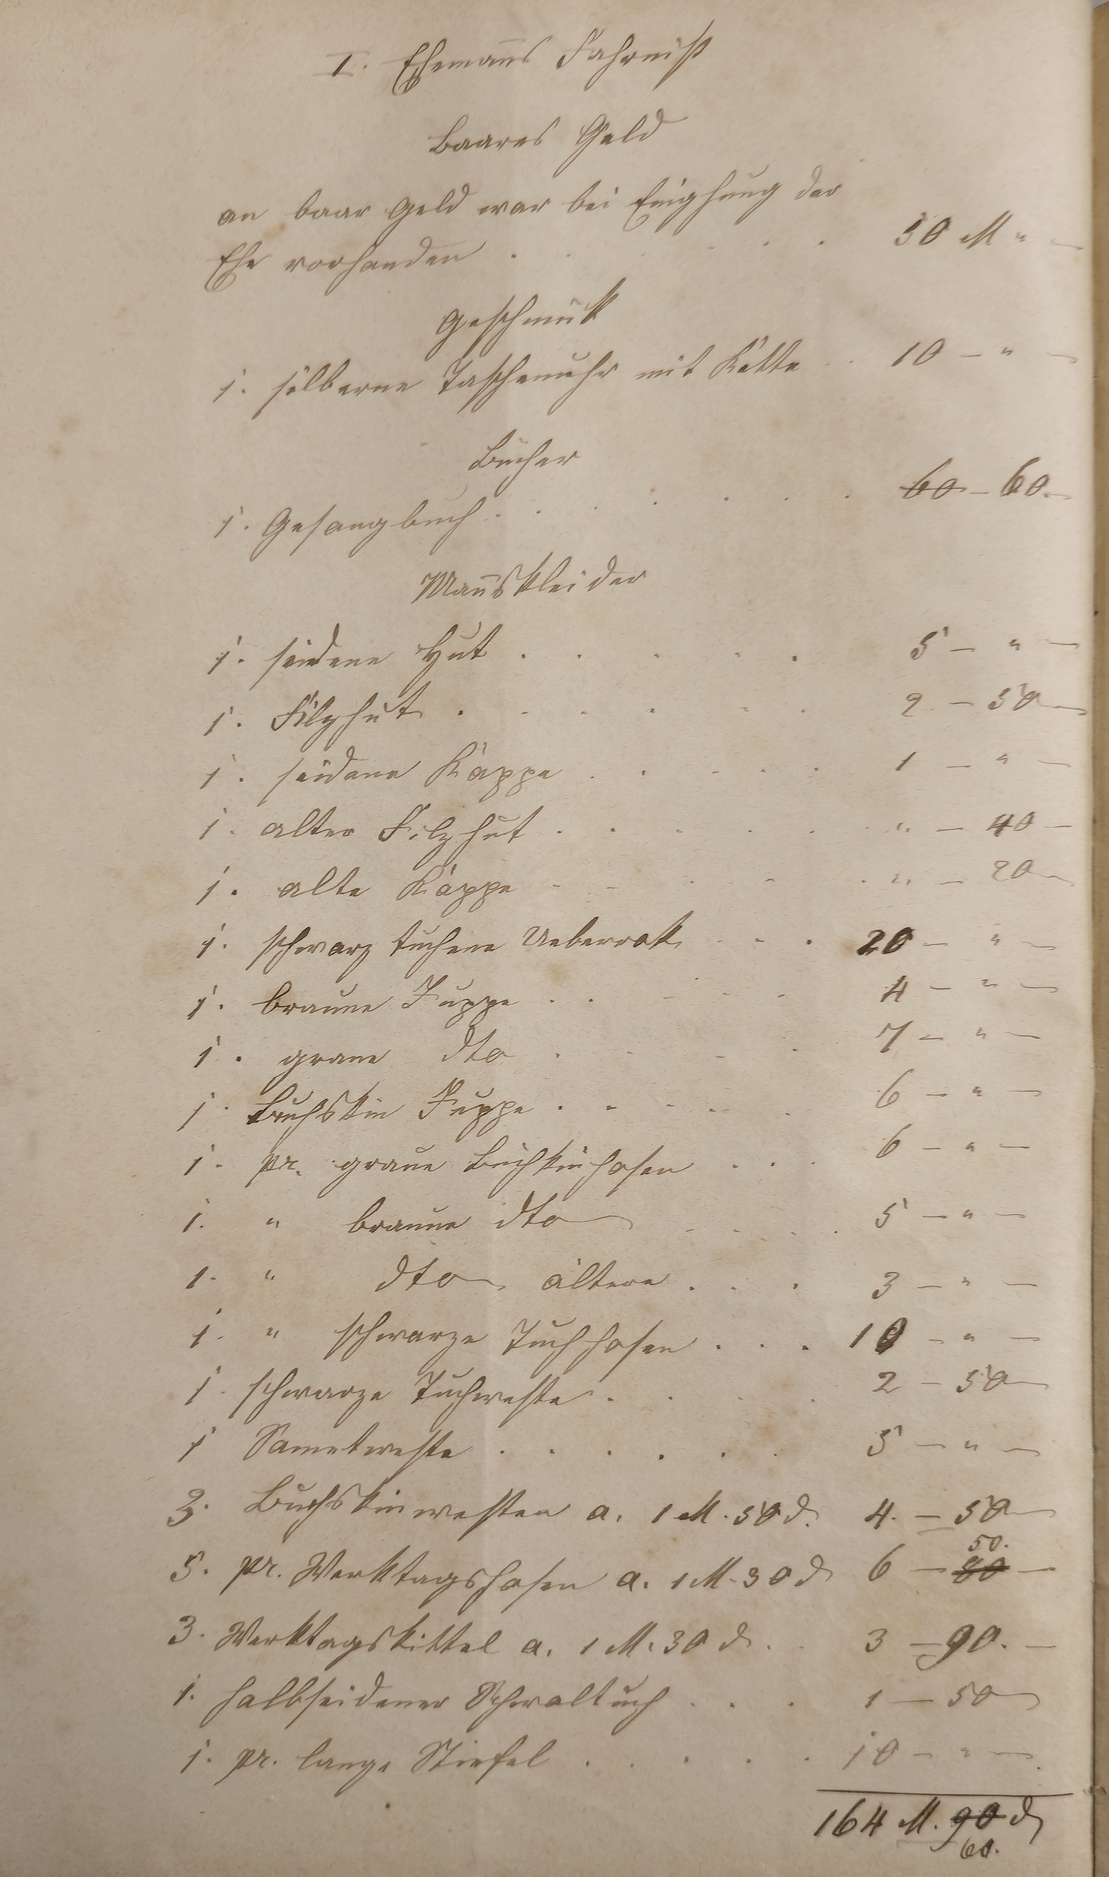 I. Ehemanns Fahrniß
Baares Geld
an baar Geld war bei Eingehung der
Ehe vorhanden . . . . . 50 M „ —
Geschmuk
1. silberne Taschenuhr mit Kette . . 10 — „ —
Bücher
1. Gesangbuch . . . . . . 60 — 60. —
Mannskleider
1. seidene Hut . . . . . . 5 — „ —
1. Filzhut . . . . . . 2 — 50 —
1. seidene Kappe . . . . . 1 — „ —
1. alter Filzhut . . . . . „ — 40 —
1. alte Kappe . . . . . „ — 20 —
1. schwarz tuchene Ueberrok . . . 20 — „ —
1. braune Juppe . . . . . 4 — „ —
1. graue dto . . . . 7 — „ —
1. Buchskin Juppe . . . . . 6 — „ —
1. pr. graue Buchkinhosen . . . 6 — „ —
1. „ braune dto . . . . 5 — „ —
1. „ dto ältere . . . 3 — „ —
1. „ schwarze Tuchhosen . . . 10 — „ —
1. schwarze Tuchweste . . . . 2 — 50 —
1 Sametweste . . . . . . 5 — „ —
3. Buchskinwesten a. 1 M. 50 d. 4. — 50 —
5. pr. Werktagshosen a. 1 M. 30 d 6 — 80 — 50.
3. Werktagskittel a. 1 M. 30 d. . 3 — 90. —
1. halbseidener Schwaltuch . . . 1 — 50
1. pr. lange Stiefel . . . . . 10 — „ —
164 M. 90 d
60.